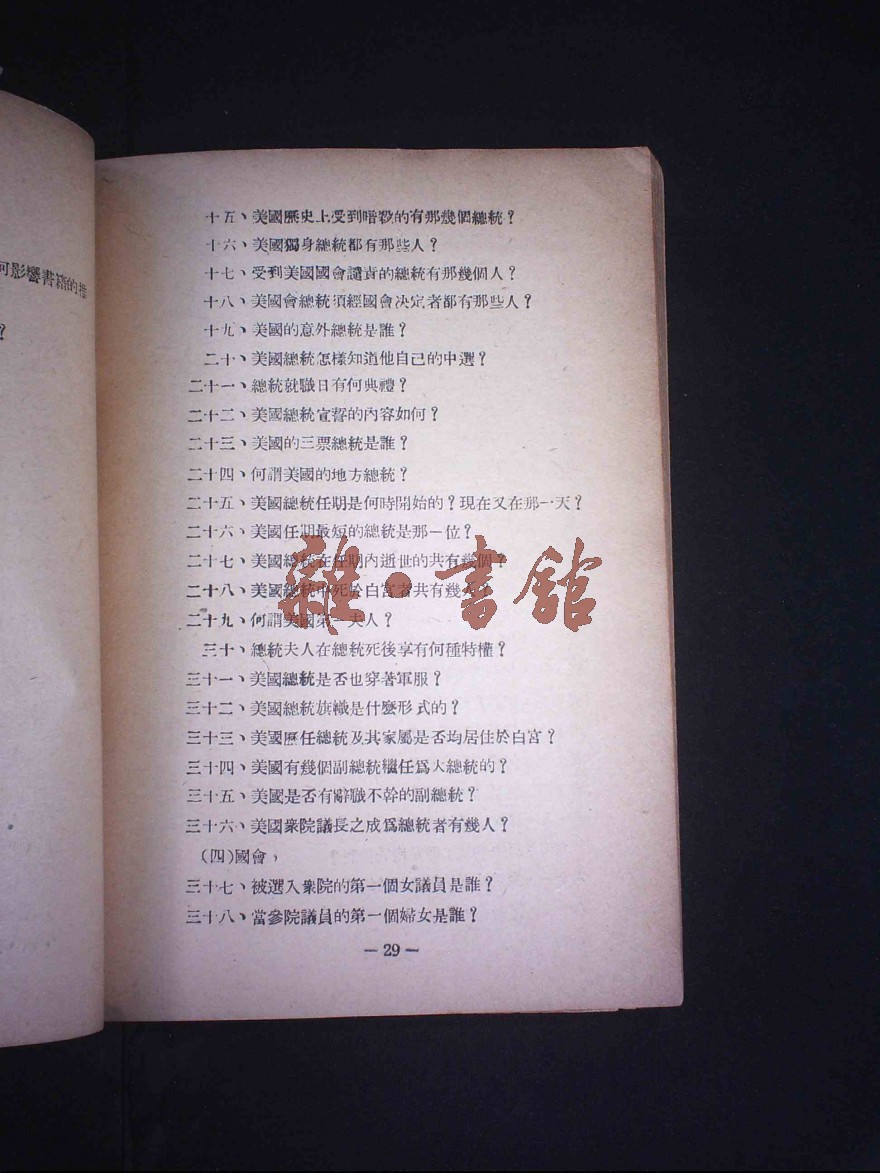 何影響書籍的
?
十五、美國歷史上受到暗殺的有那幾個總統?
十六、美國獨身總統都有那些人?
十七、受到美國國會譴責的總統有那幾個人?
十八、美國會總統須經國會決定者都有那些人?
十九、美國的意外總統是誰?
二十、美國總統怎樣知道他自己的中選?
二十一、總統就職日有何典禮?
二十二、美國總統宣誓的內容如何?
二十三、美國的三票總統是誰?
二十四、何謂美國的地方總統?
二十五、美國總統任期是何時開始的?現在又在那一天?
二十六、美國任期最短的總統是那一位?
二十七、美國總統在任期內逝世的共有幾個?
二十八、美國總統中死於白宮者共有幾人?
二十九、何謂美國第一夫人?
三十、總統夫人在總統死後享有何種特權?
三十一、美國總統是否也穿著軍服?
三十二、美國總統旗幟是什麼形式的?
三十三、美國歷任總統及其家屬是否均居住於白宮?
三十四、美國有幾個副總統繼任爲大總統的?
三十五、美國是否有辭職不幹的副總統?
三十六、美國衆院議長之成爲總統者有幾人?
(四)國會,
三十七、被選入衆院的第一個女議員是誰?
三十八、當參院議員的第一個婦女是誰?
— 29 —
雜·書館